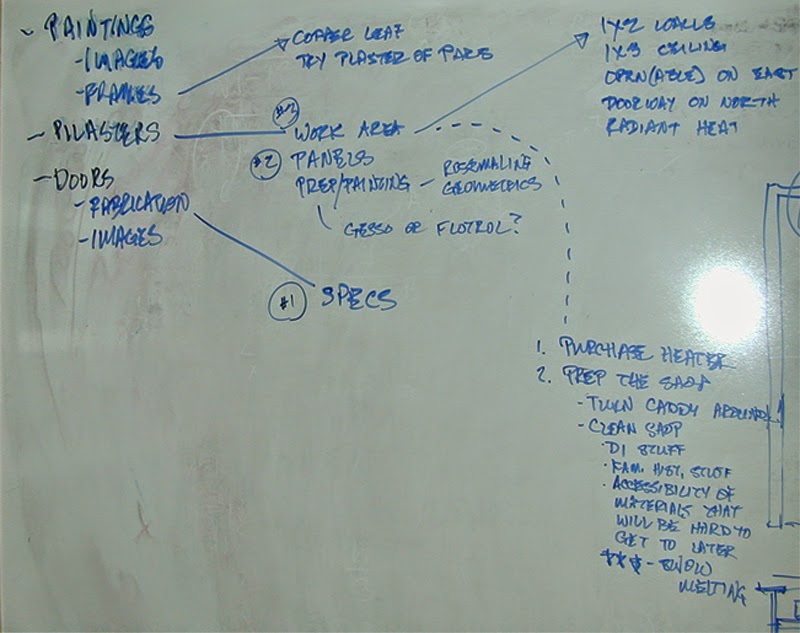 - PAINTINGS
- IMAGES
- FRAMES
COPPER LEAF
TRY PLASTER OF PARIS
- PILASTERS
WORK AREA
#2 PANELS
PREP/PAINTING - ROSEMALING
GEOMETRICS
GESSO OR FLOTROL?
1X2 WALLS
1X3 CEILING
OPEN(ABLE) ON EAST
DOORWAY ON NORTH
RADIANT HEAT
- DOORS
- FABRICATION
- IMAGES
#1 SPECS
1. PURCHASE HEATER
2. PREP THE SHOP
- TURN CADDY AROUND
- CLEAN SHOP
· DI STUFF
· FAM. HIST. STUFF
· ACCESSIBILITY OF
MATERIALS THAT
WILL BE HARD TO
GET TO LATER
*** - SNOW
MELTING